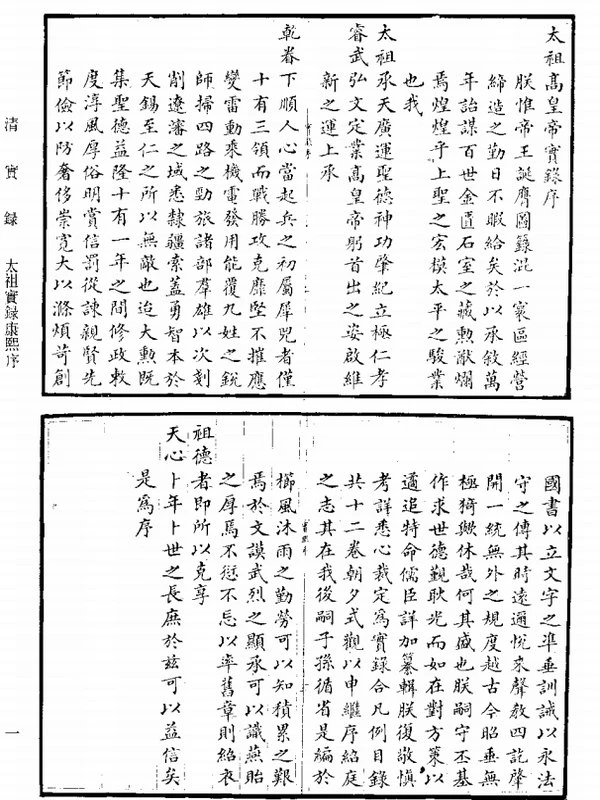 太祖高皇帝實錄序
朕惟帝王誕膺圖籙混一寰區經營
締造之勤日不暇給矣於以承敘萬
年詒謀百世金匱石室之藏勲猷爛
焉煌煌乎上聖之宏模太平之駿業
也我
太祖承天廣運聖德神功肇紀立極仁孝
睿武弘文定業髙皇帝躬首出之姿啟維
新之運上承
乾眷下順人心當起兵之初屬犀兕者僅
十有三領而戰勝攻克靡堅不摧應
變雷動乘機電發用能覆九姓之銳
師掃四路之勁旅諸部羣雄以次刻
削遼瀋之域悉隸疆索蓋勇智本於
天錫至仁之所以無敵也迨大勲既
集聖德益隆十有一年之間修政敕
度淳風厚俗明賞信罰從諫親賢先
節儉以防奢侈崇寬大以滌煩苛創
國書以立文字之準垂訓誡以永法
守之傳其時遠邇悅來聲教四訖肇
開一統無外之規度越古今昭垂無
極猗歟休哉何其盛也朕嗣守丕基
作求世德觀耿光而如在對方策以
遹追特命儒臣詳加纂輯朕復敬慎
考詳悉心裁定為實錄合凡例目錄
共十二卷朝夕式觀以申繼序紹庭
之志其在我後嗣子孫循省是編於
櫛風沐雨之勤勞可以知積累之艱
焉於文謨武烈之顯承可以識燕貽
之厚焉不愆不忘以率舊章則紹衣
祖德者即所以克享
天心卜年卜世之長庶於茲可以益信矣
是為序
清實錄 太祖實錄康熙序
一